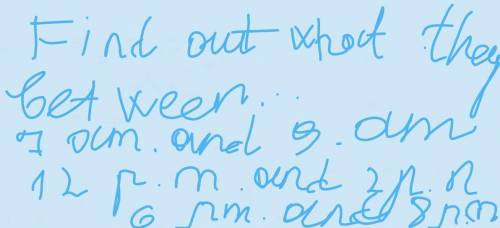 Find out what they
between...
7 am. and 9. am
12 p.m. and 2 p.m
6 pm. and 8 p.m